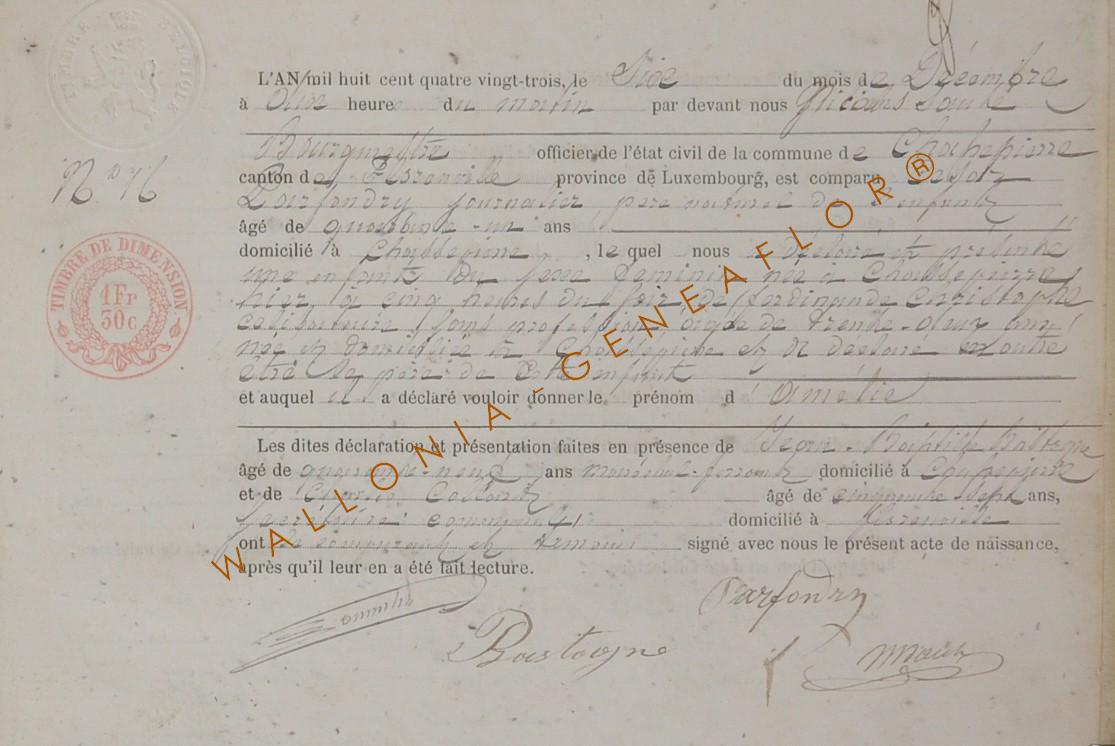 TIMBRE BELGIQUE
L'AN mil huit cent quatre vingt-trois, le Six du mois de Décembre
à heure du matin par devant nous
Bourgmestre officier de l'état civil de la commune de Chassepierre
canton de Florenville province de Luxembourg, est comparu
N° 16
Parfondry journalier père naturel de l'enfant
âgé de quarante-un ans
TIMBRE DE DIMENSION
1Fr
30c
domicilié à Chassepierre, lequel nous a déclaré et présenté
une enfant du sexe féminin née à Chassepierre
hier, à cinq heures du soir, de Ferdinande Christophe
célibataire, sans profession, âgée de trente-deux ans
née et domiciliée à Chassepierre et a déclaré en outre
être le père de cette enfant
et auquel il a déclaré vouloir donner le prénom d'Amélie
Les dites déclaration et présentation faites en présence de Jean-Baptiste Bastogne
âgé de quarante-neuf ans domicilié à
et de âgé de cinquante-sept ans,
secrétaire communal domicilié à Florenville
ont le comparant et témoins signé avec nous le présent acte de naissance,
après qu'il leur en a été fait lecture.
Parfondry
Bastogne
WALLONIA-GENEAFLOR®